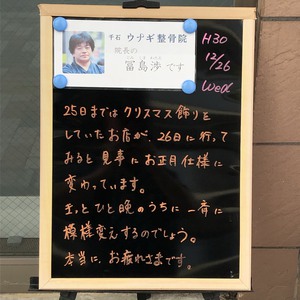 千石 ウナギ整骨院
院長の
冨島渉です
H30
12/26
Wed
25日まではクリスマス飾りを
していたお店が、26日に行って
みると見事にお正月仕様に
変わっています。
きっとひと晩のうちに一斉に
模様変えするのでしょう。
本当に、お疲れさまです。